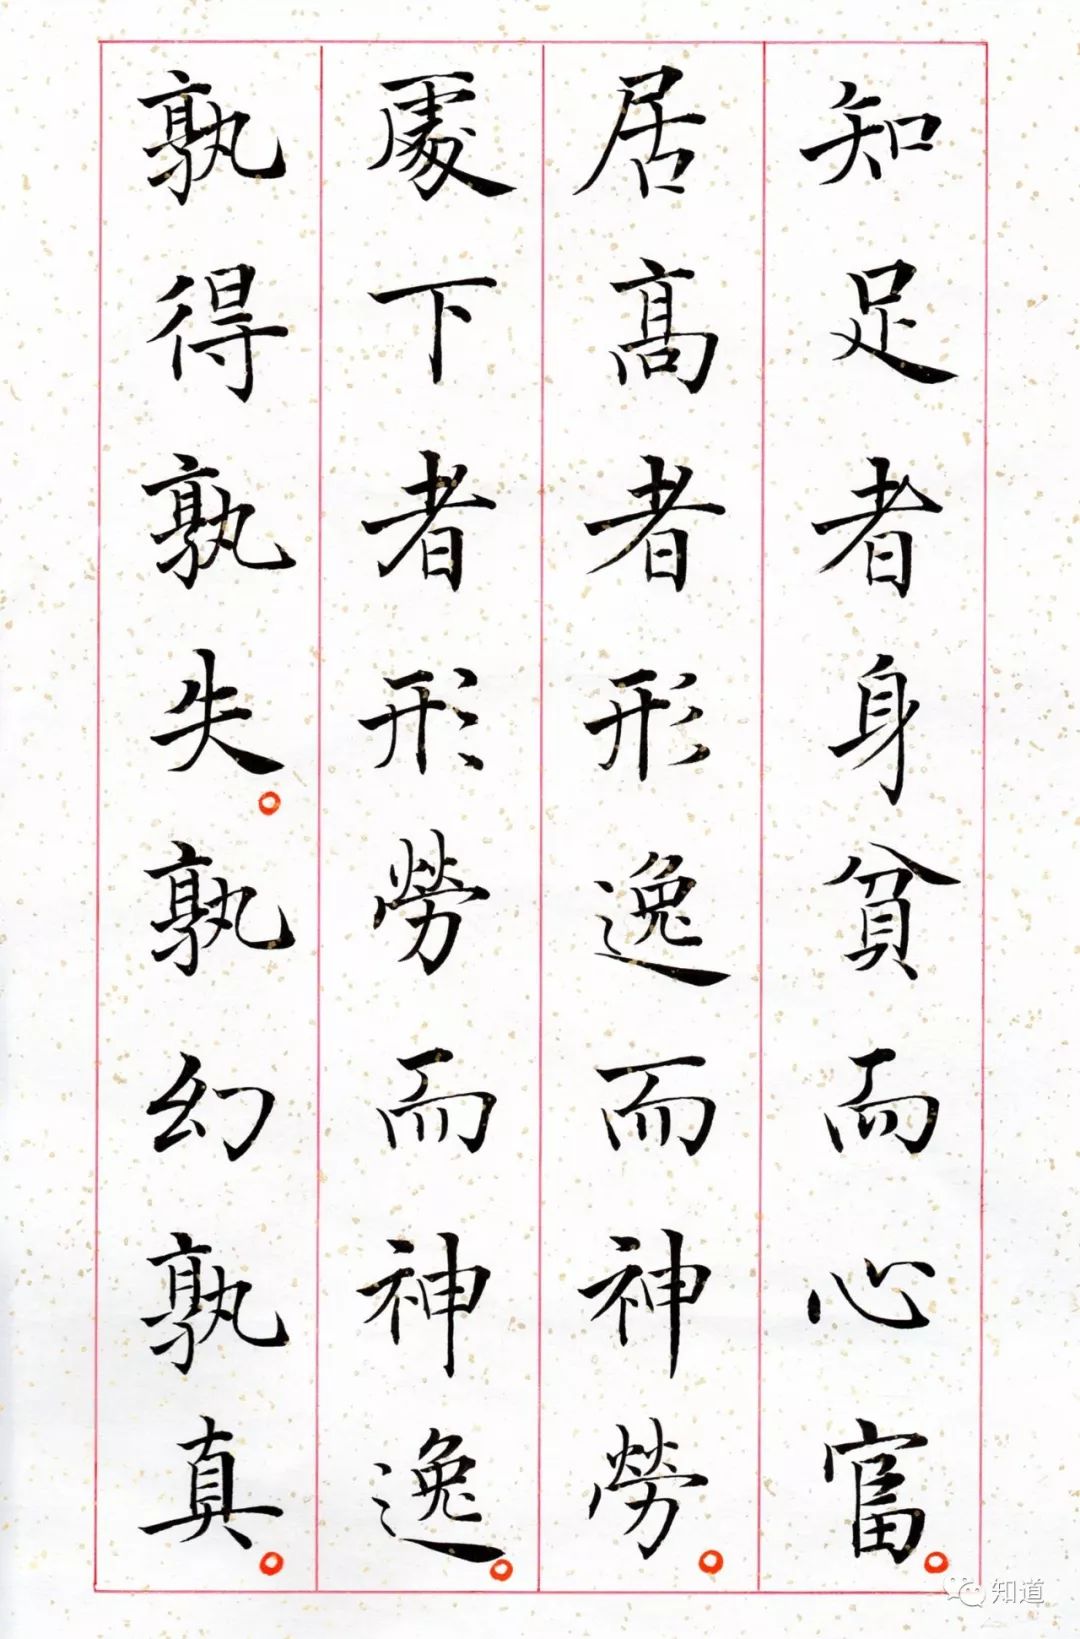 知足者身貧而心富
居高者形逸而神勞
處下者形勞而神逸
孰得孰失孰幻孰真
知道